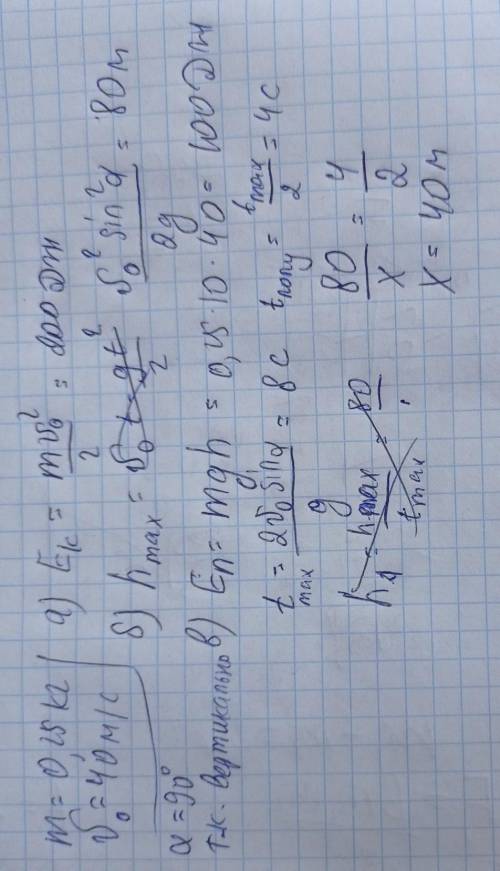 m = 0,25 кг
v₀ = 40 м/с
α = 90°
т.к. вертикально
а) Eк = mv₀²/2 = 200 Дж
б) hmax = v₀²sin²α/2g = 80 м
в) Eп = mgh = 0,25·10·40 = 100 Дж
tmax = 2v₀sinα/g = 8 с tполу = tmax/2 = 4 с
80/x = 4/2
x = 40 м